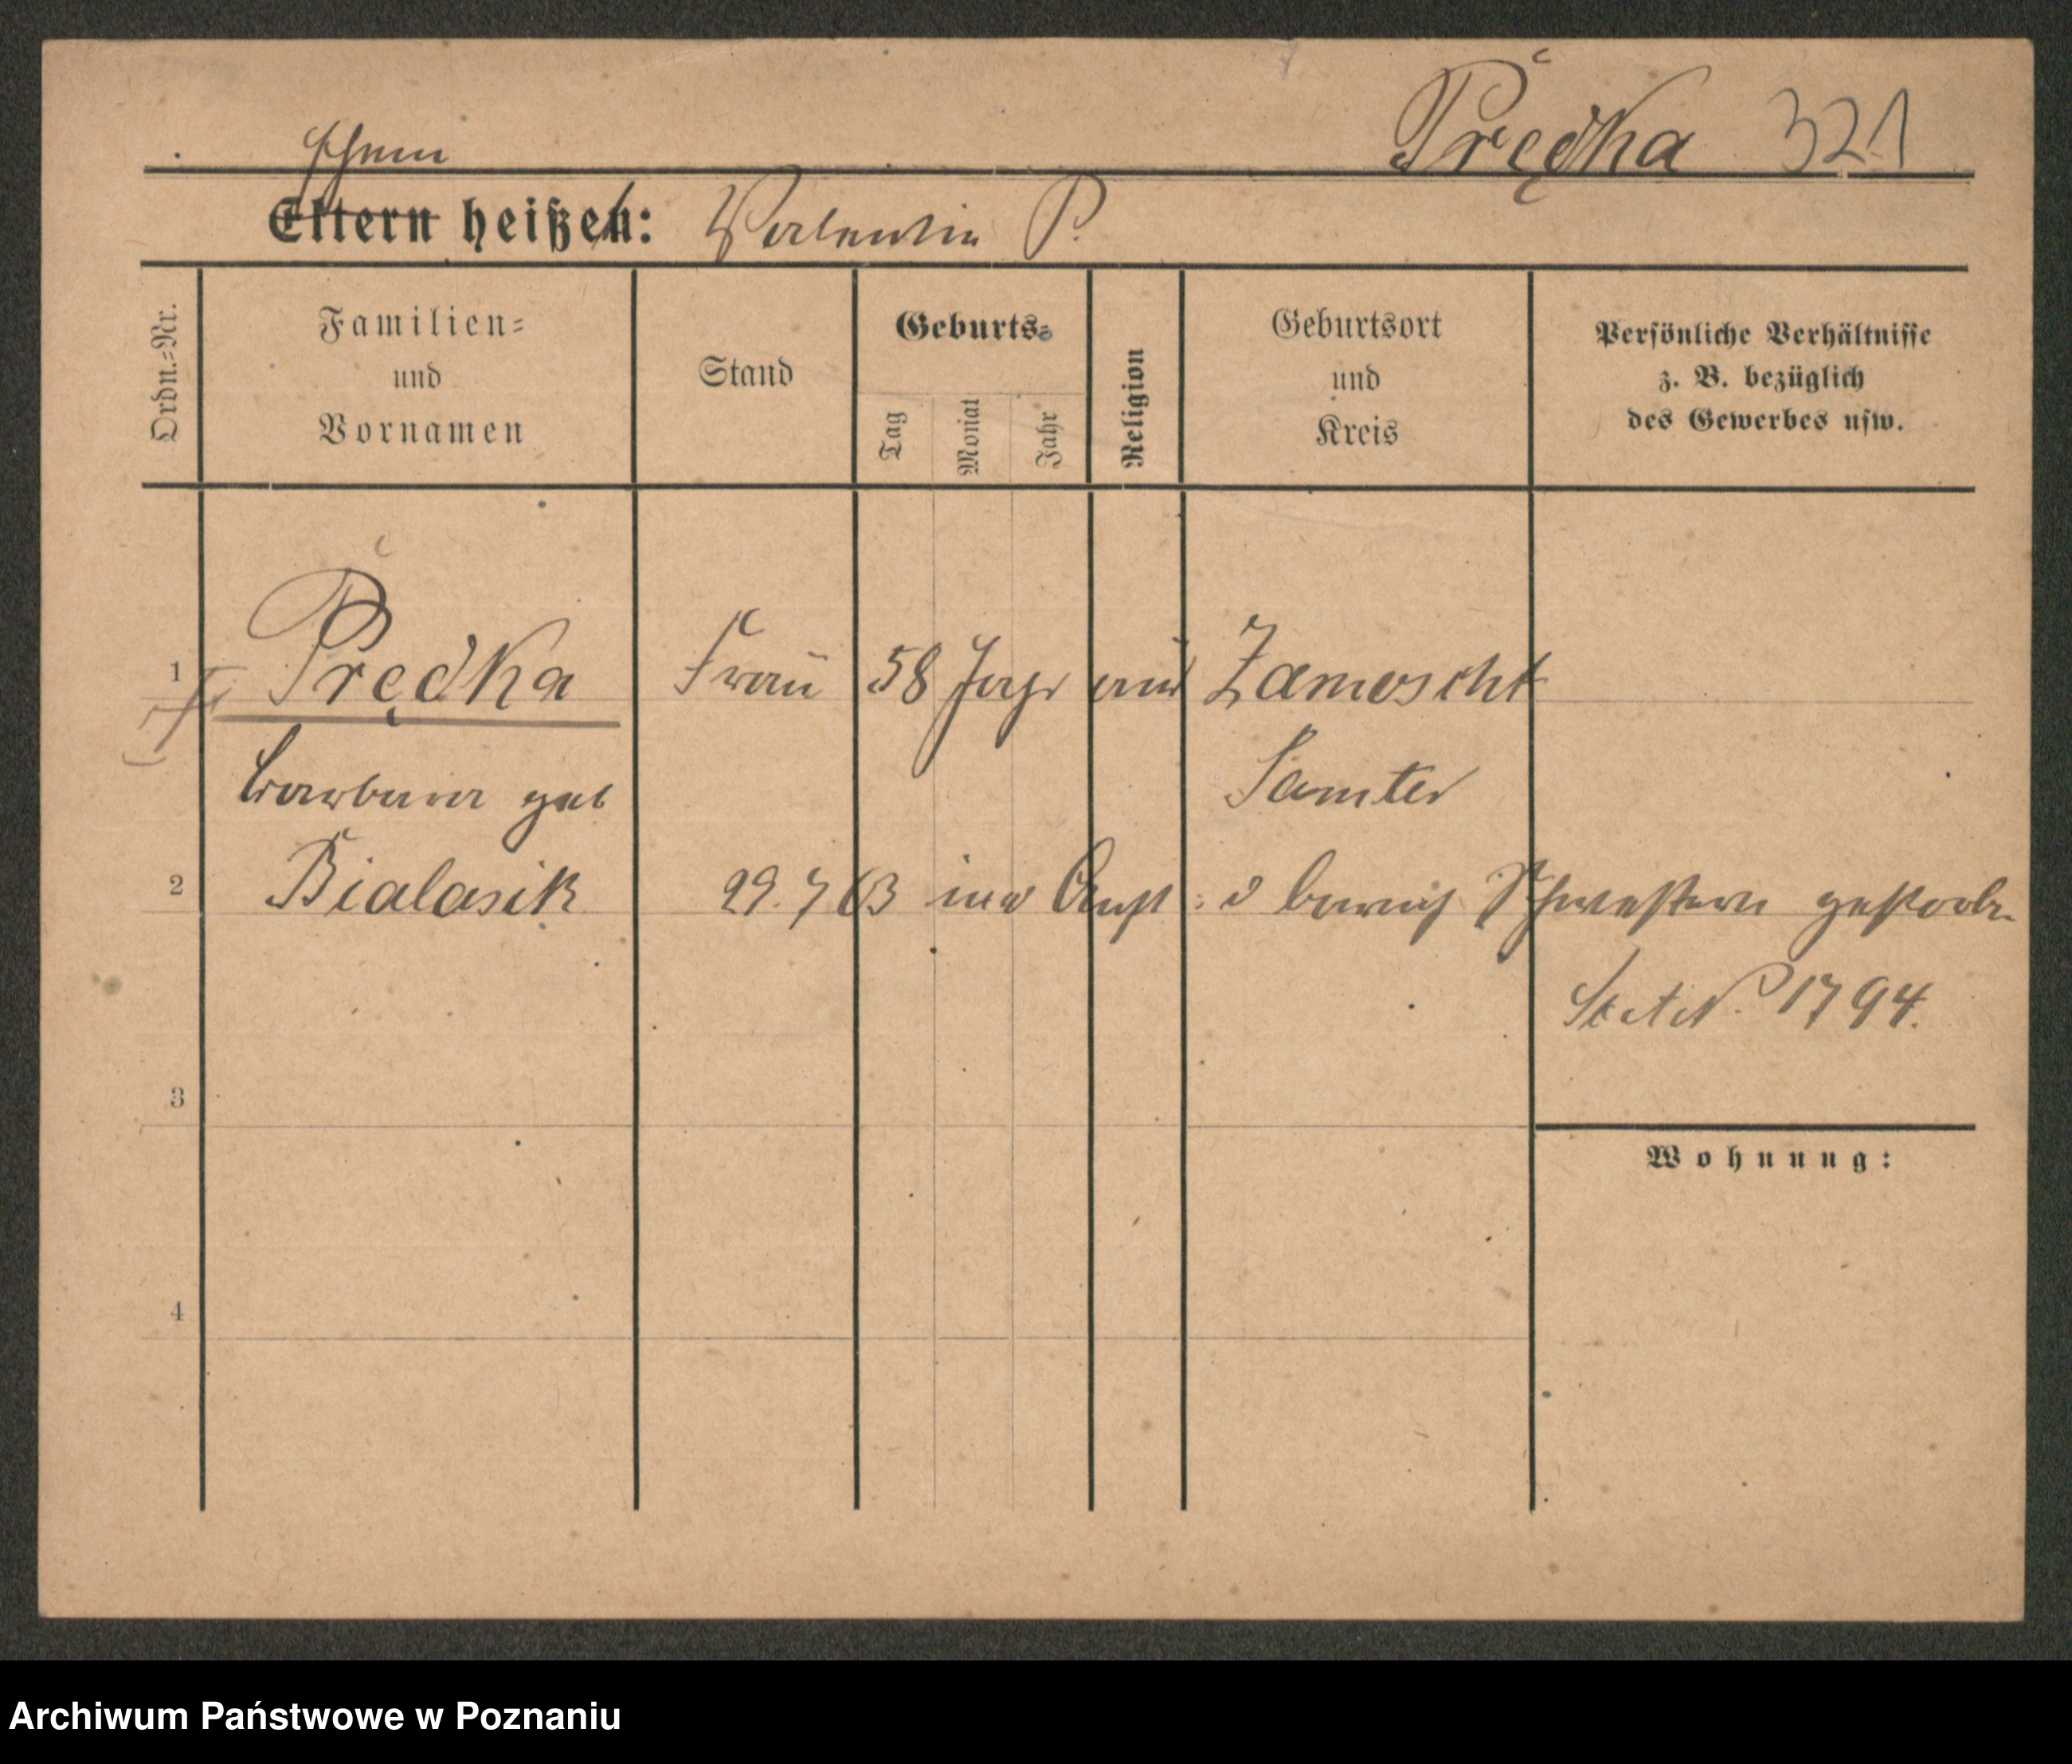 Prędka 321
Ehem
Eltern heißen: Valentin P.
Ordn.=Nr.
Familien=
und
Vornamen
Stand
Geburts=
Tag
Monat
Jahr
Religion
Geburtsort
und
Kreis
Persönliche Verhältnisse
z. B. bezüglich
des Gewerbes usw.
1 Prędka Frau 58 Jahr aus Zamoscht
Barbara geb Samter
2 Bialasik 29. 7 03 in d Anst: d barmh Schwestern gestorben
1794.
3
Wohnung:
4
Archiwum Państwowe w Poznaniu